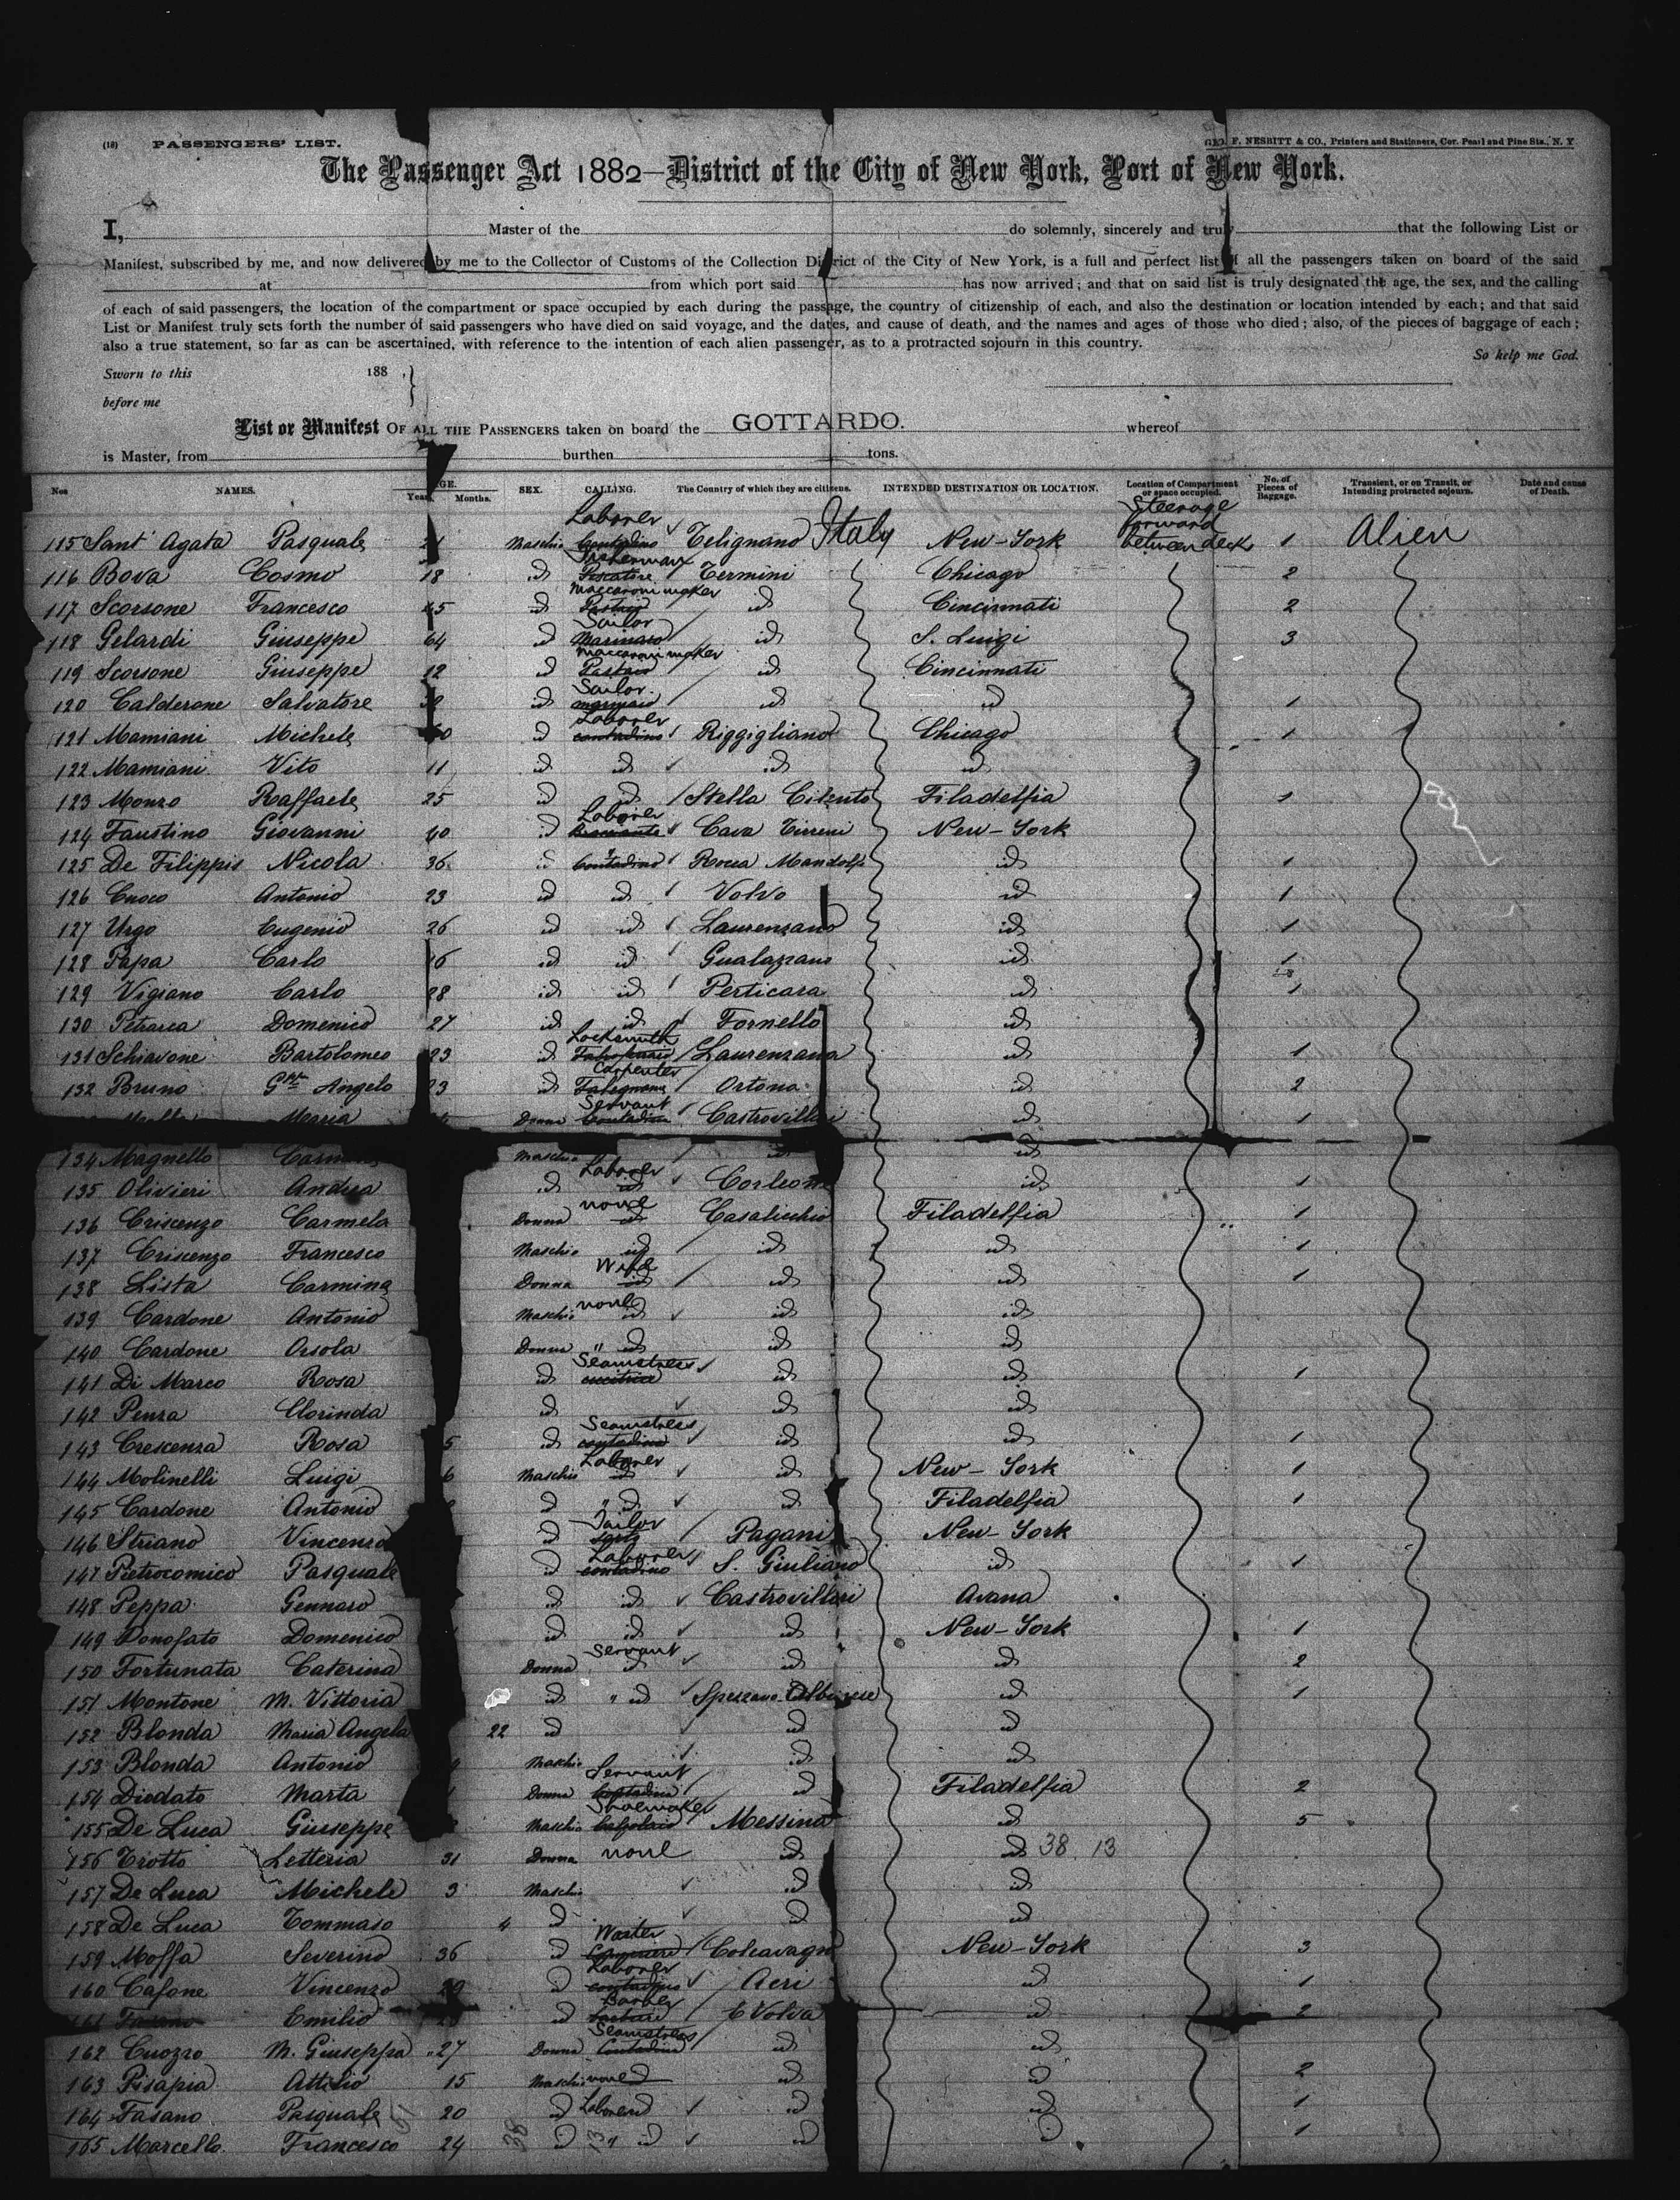 (18) PASSENGERS' LIST.
GEO. F. NESBITT & CO., Printers and Stationers, Cor. Pearl and Pine Sts., N. Y
The Passenger Act 1882—District of the City of New York, Port of New York.
I, Master of the do solemnly, sincerely and truly that the following List or
Manifest, subscribed by me, and now delivered by me to the Collector of Customs of the Collection District of the City of New York, is a full and perfect list of all the passengers taken on board of the said
at from which port said has now arrived; and that on said list is truly designated the age, the sex, and the calling
of each of said passengers, the location of the compartment or space occupied by each during the passage, the country of citizenship of each, and also the destination or location intended by each; and that said
List or Manifest truly sets forth the number of said passengers who have died on said voyage, and the dates, and cause of death, and the names and ages of those who died; also, of the pieces of baggage of each;
also a true statement, so far as can be ascertained, with reference to the intention of each alien passenger, as to a protracted sojourn in this country.
So help me God.
Sworn to this 188 ,
before me
List or Manifest OF ALL THE PASSENGERS taken on board the GOTTARDO. whereof
is Master, from burthen tons.
Nos NAMES. AGE. Years. Months. SEX. CALLING. The Country of which they are citizens. INTENDED DESTINATION OR LOCATION. Location of Compartment or space occupied. No. of Pieces of Baggage. Transient, or on Transit, or Intending protracted sojourn. Date and cause of Death.
115 Sant' Agata Pasquale Maschio Laborer Contadino Italy New-York Steerage forward between decks 1 Alien
116 Bova Cosmo 18 id Fisherman Pescatore Termini Chicago 2
117 Scorsone Francesco 45 id Maccaroni maker Pastaio id Cincinnati 2
118 Gelardi Giuseppe 64 id Sailor Marinaro id S. Luigi 3
119 Scorsone Giuseppe 12 id Maccaroni maker Pastaio id Cincinnati
120 Calderone Salvatore id Sailor id id 1
121 Mamiani Michele id Laborer contadino Riggigliano Chicago 1
122 Mamiani Vito 11 id id id id
123 Monzo Raffaele 25 id id Stella Cilento Filadelfia 1
124 Faustino Giovanni 40 id Laborer Cava Tirreni New-York
125 De Filippis Nicola 36 Contadino Rocca Mandolfi id 1
126 Cuoco Antonio 23 id id Volvo id 1
127 Urgo Eugenio 26 id id Laurenzano id 1
128 Papa Carlo id id Gualazano id 1
129 Vigiano Carlo 28 id id Perticara id 1
130 Petrarca Domenico 27 id id Fornello id
131 Schiavone Bartolomeo 23 id Locksmith Laurenzana id 1
132 Bruno Angelo 23 id Carpenter Falegname Ortona id 2
Maria Donna Servant Contadina Castrovillari id 1
134 Magnello Maschio id
135 Olivieri Andrea id Laborer id Corleone id 1
136 Criscenzo Carmela Donna none id Casalicchio Filadelfia 1
137 Criscenzo Francesco Maschio id id id 1
138 Lista Carmina Donna Wife id id id 1
139 Cardone Antonio Maschio none id id id
140 Cardone Orsola Donna " id id id
141 Di Marco Rosa id Seamstress cucitrice id id 1
142 Penza Clorinda id id id
143 Crescenza Rosa 5 id Seamstress contadina id id 1
144 Molinelli Luigi 6 Maschio Laborer id id New-York 1
145 Cardone Antonio id " id id Filadelfia 1
146 Striano Vincenzo id Tailor sarto Pagani New-York
147 Pietrocomico Pasquale id Laborer contadino S. Giuliano id 1
148 Peppa Gennaro id id Castrovillari Avana
149 Donofato Domenico id id id New-York 1
150 Fortunata Caterina Donna Servant id id id 2
151 Montone M. Vittoria id " id Spezzano Albanese id 1
152 Blonda Maria Angela 22 id id id
153 Blonda Antonio Maschio id id
154 Diodato Marta Donna Servant Contadina id Filadelfia 2
155 De Luca Giuseppe Maschio Shoemaker Calzolaio Messina id 5
156 Trotto Letteria 31 Donna none id id 38 13
157 De Luca Michele 3 Maschio id id
158 De Luca Tommaso 4 id id id
159 Moffa Severino 36 id Waiter Cameriere New-York 3
160 Cafone Vincenzo 29 id Laborer contadino Acri id 1
161 Emilio id Barber id 2
162 Cuozzo M. Giuseppa 27 Donna Seamstress Contadina id id
163 Pisapia Attilio 15 Maschio none id id 2
164 Fasano Pasquale 20 id Laborer id id 1
165 Marcello Francesco 24 id " id id id 1
38 13